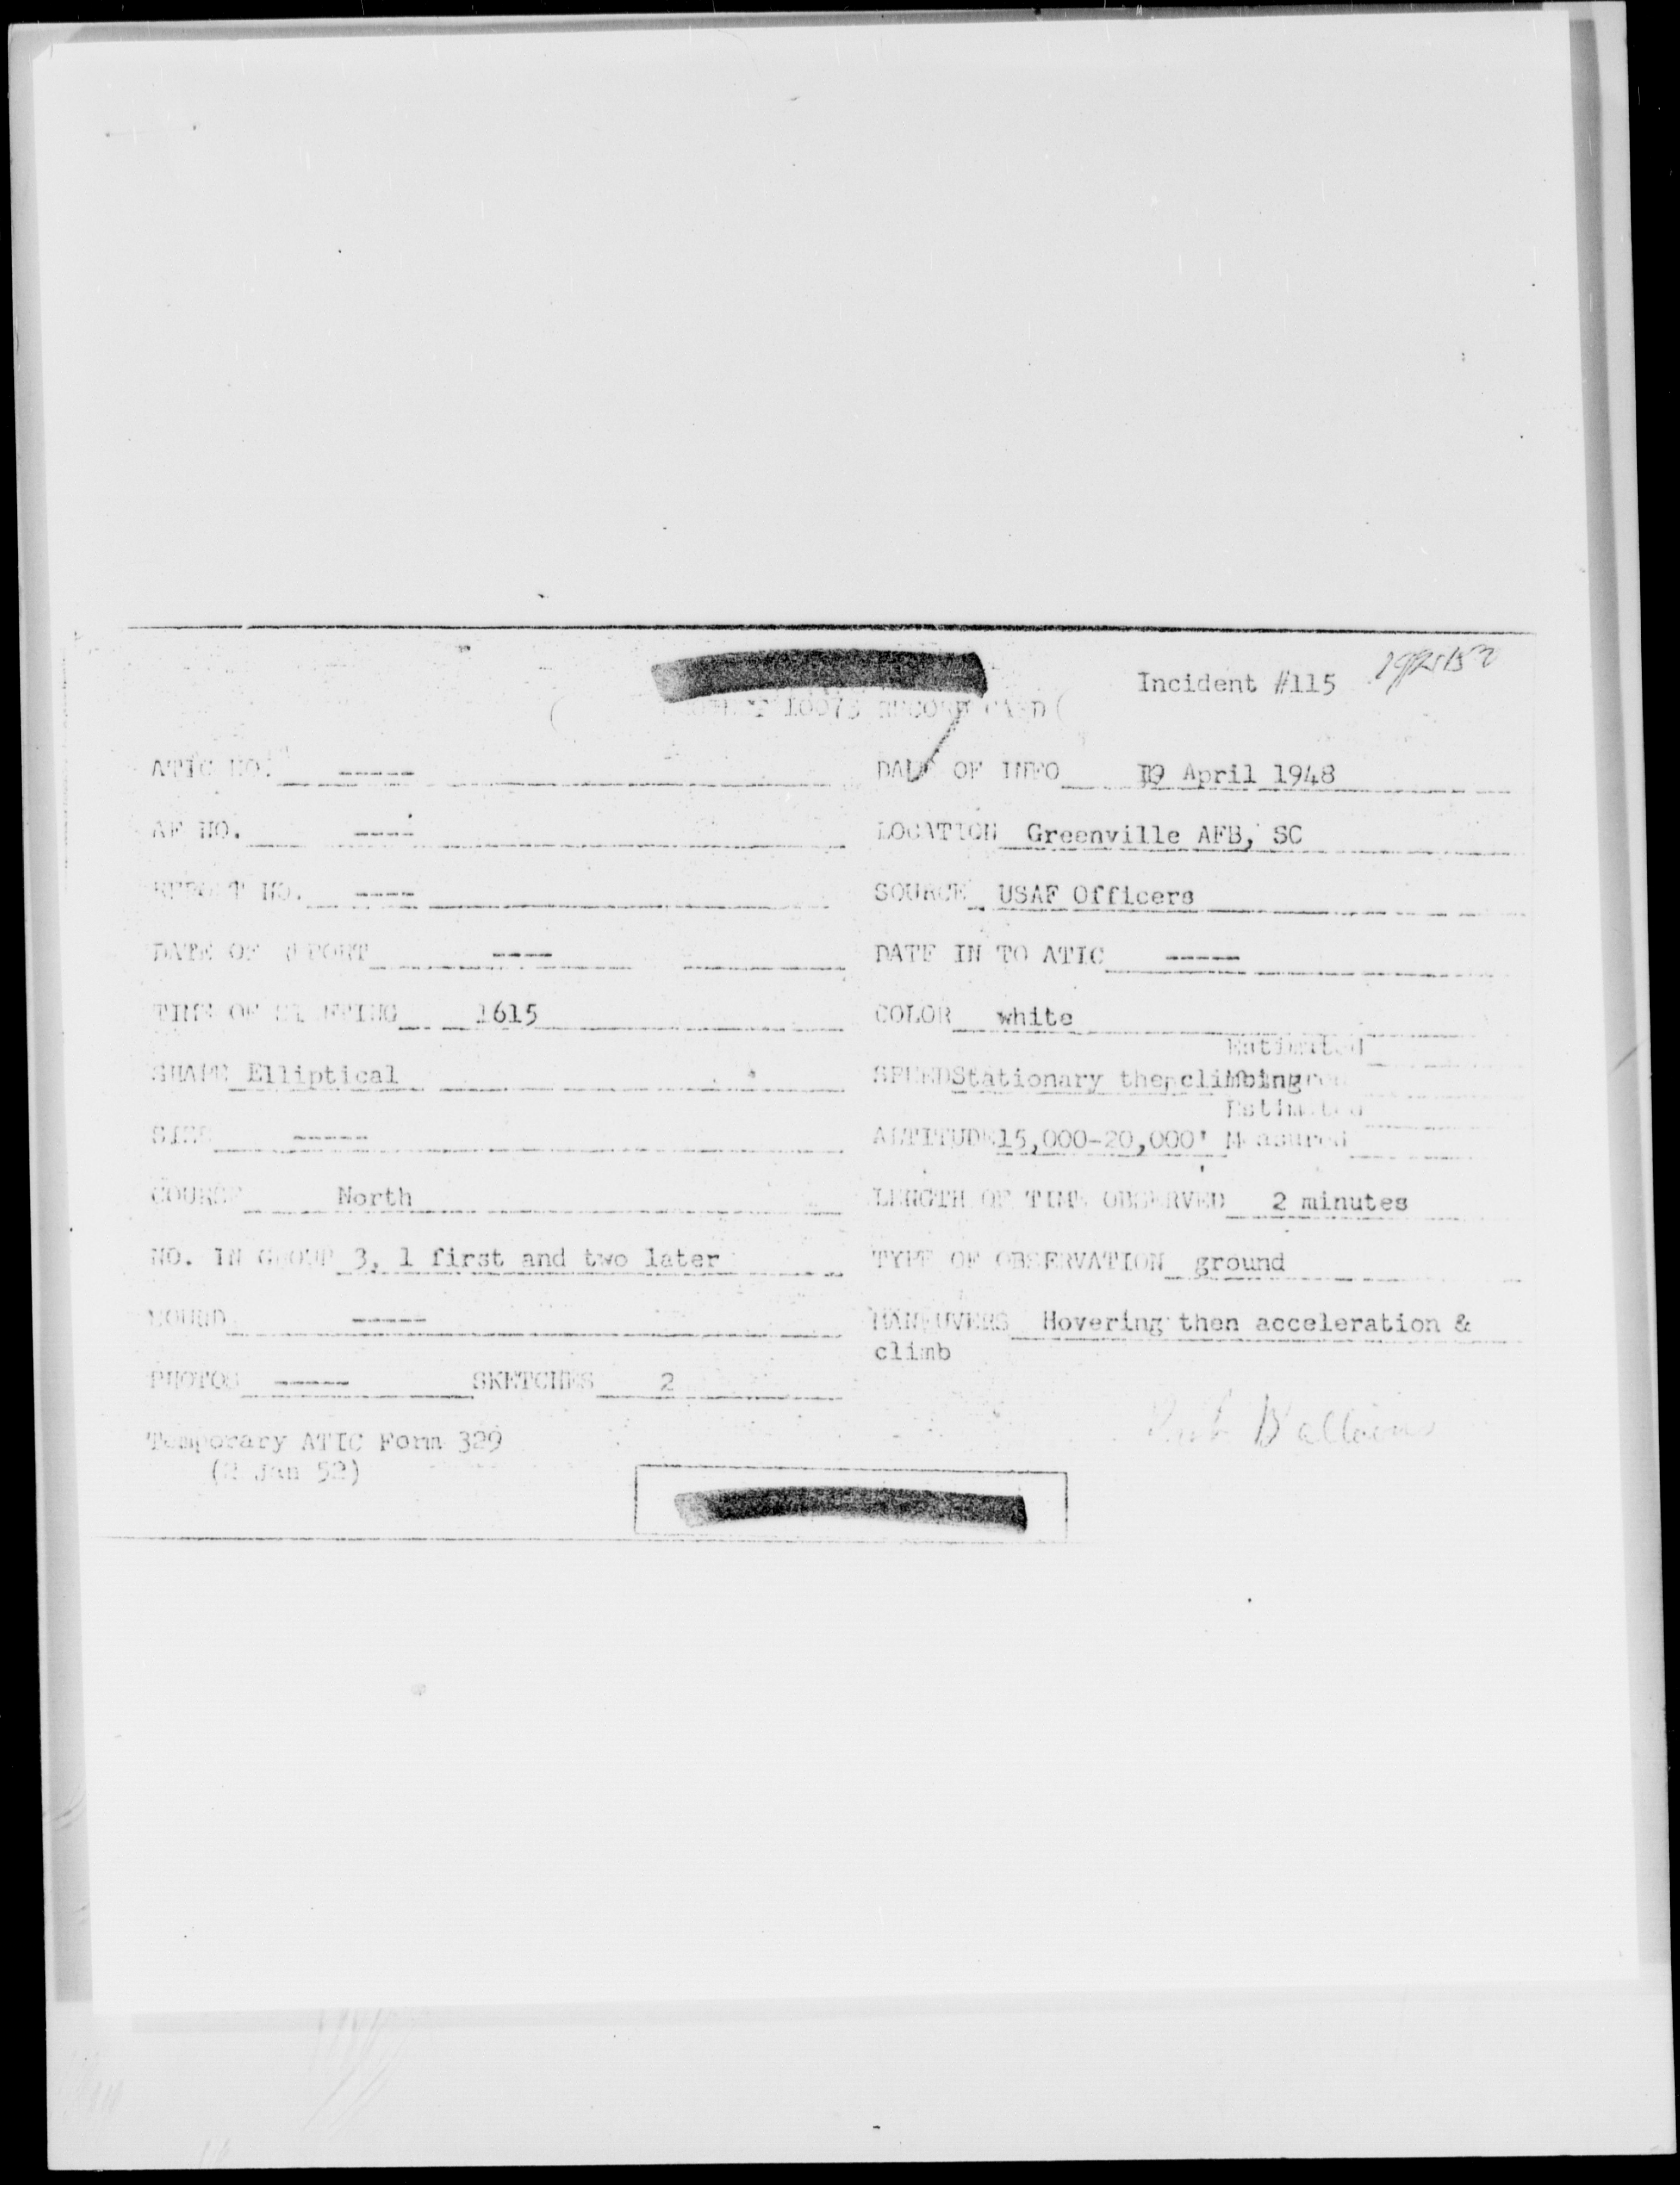 Incident #115
10073 RECORD CARD
ATIC NO. ----- DATE OF INFO 19 April 1948
AF NO. ---- LOCATION Greenville AFB, SC
REPORT NO. ---- SOURCE USAF Officers
DATE OF REPORT ---- DATE IN TO ATIC -----
TIME OF SIGHTING 1615 COLOR white
Estimated
SHAPE Elliptical SPEED Stationary then climbing
Estimated
SIZE ----- ALTITUDE 15,000-20,000' Measured
COURSE North LENGTH OF TIME OBSERVED 2 minutes
NO. IN GROUP 3, 1 first and two later TYPE OF OBSERVATION ground
SOUND ----- MANEUVERS Hovering then acceleration &
climb
PHOTOS ----- SKETCHES 2
Balloons
Temporary ATIC Form 329
(2 Jan 52)